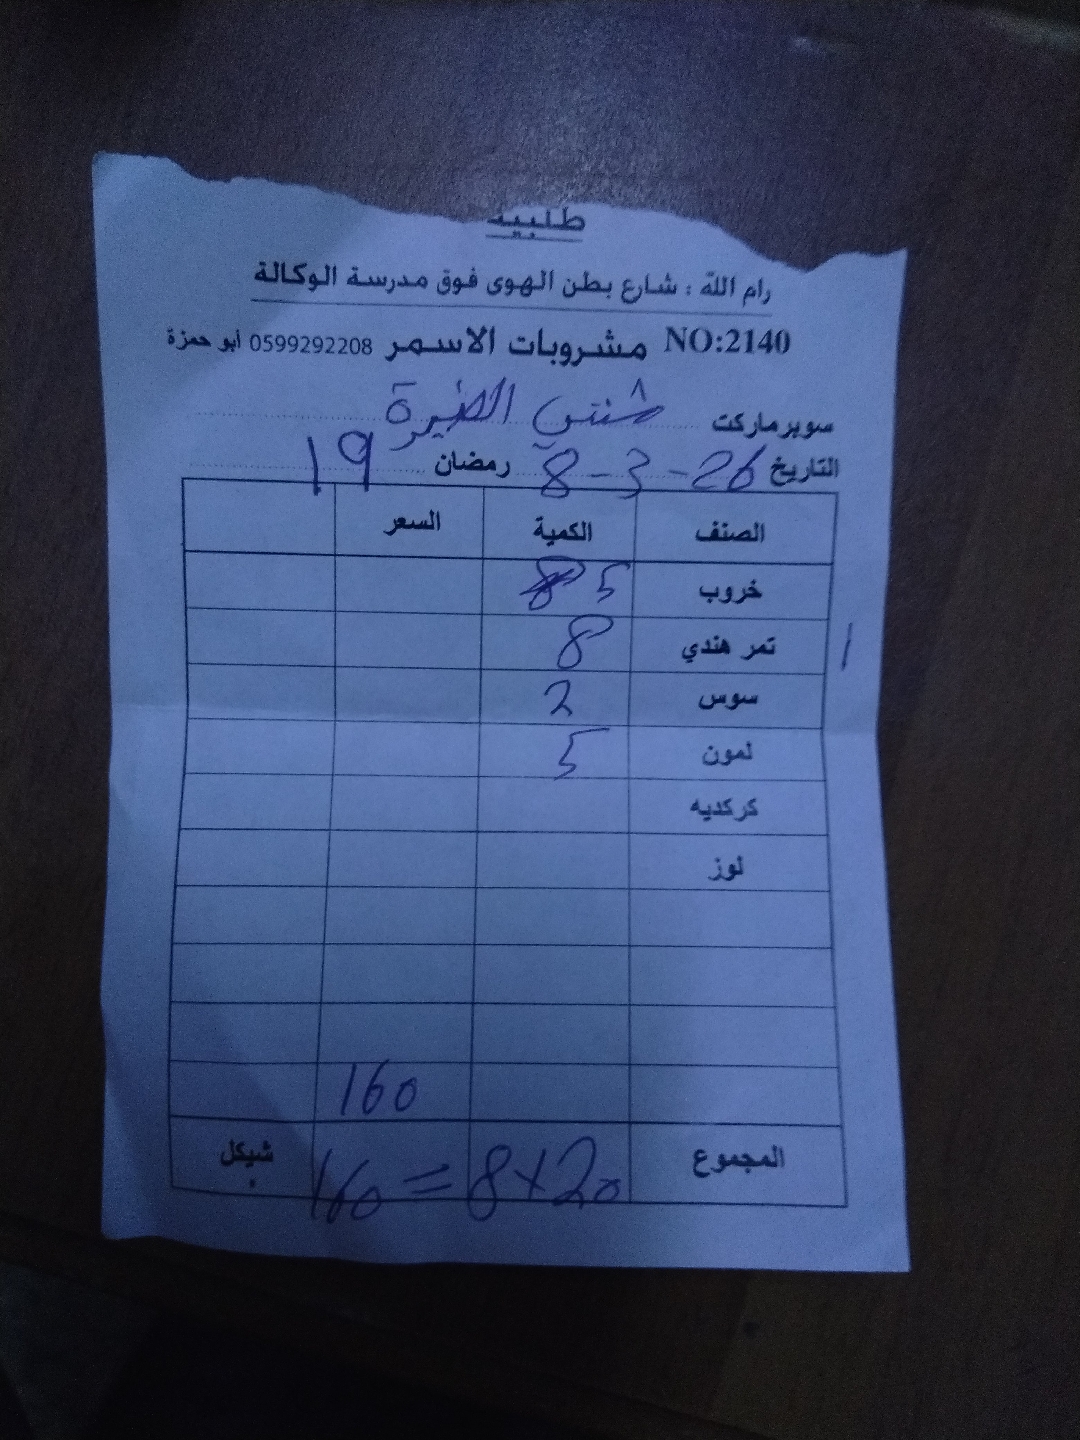 طلبية
رام الله : شارع بطن الهوى فوق مدرسة الوكالة
NO:2140 مشروبات الاسمر 0599292208 أبو حمزة
سوبرماركت
التاريخ 8-3-26 رمضان 19
الصنف الكمية السعر
خروب 5
تمر هندي 8
سوس 2
لمون 5
كركديه
لوز
160
المجموع 160 = 8x20 شيكل